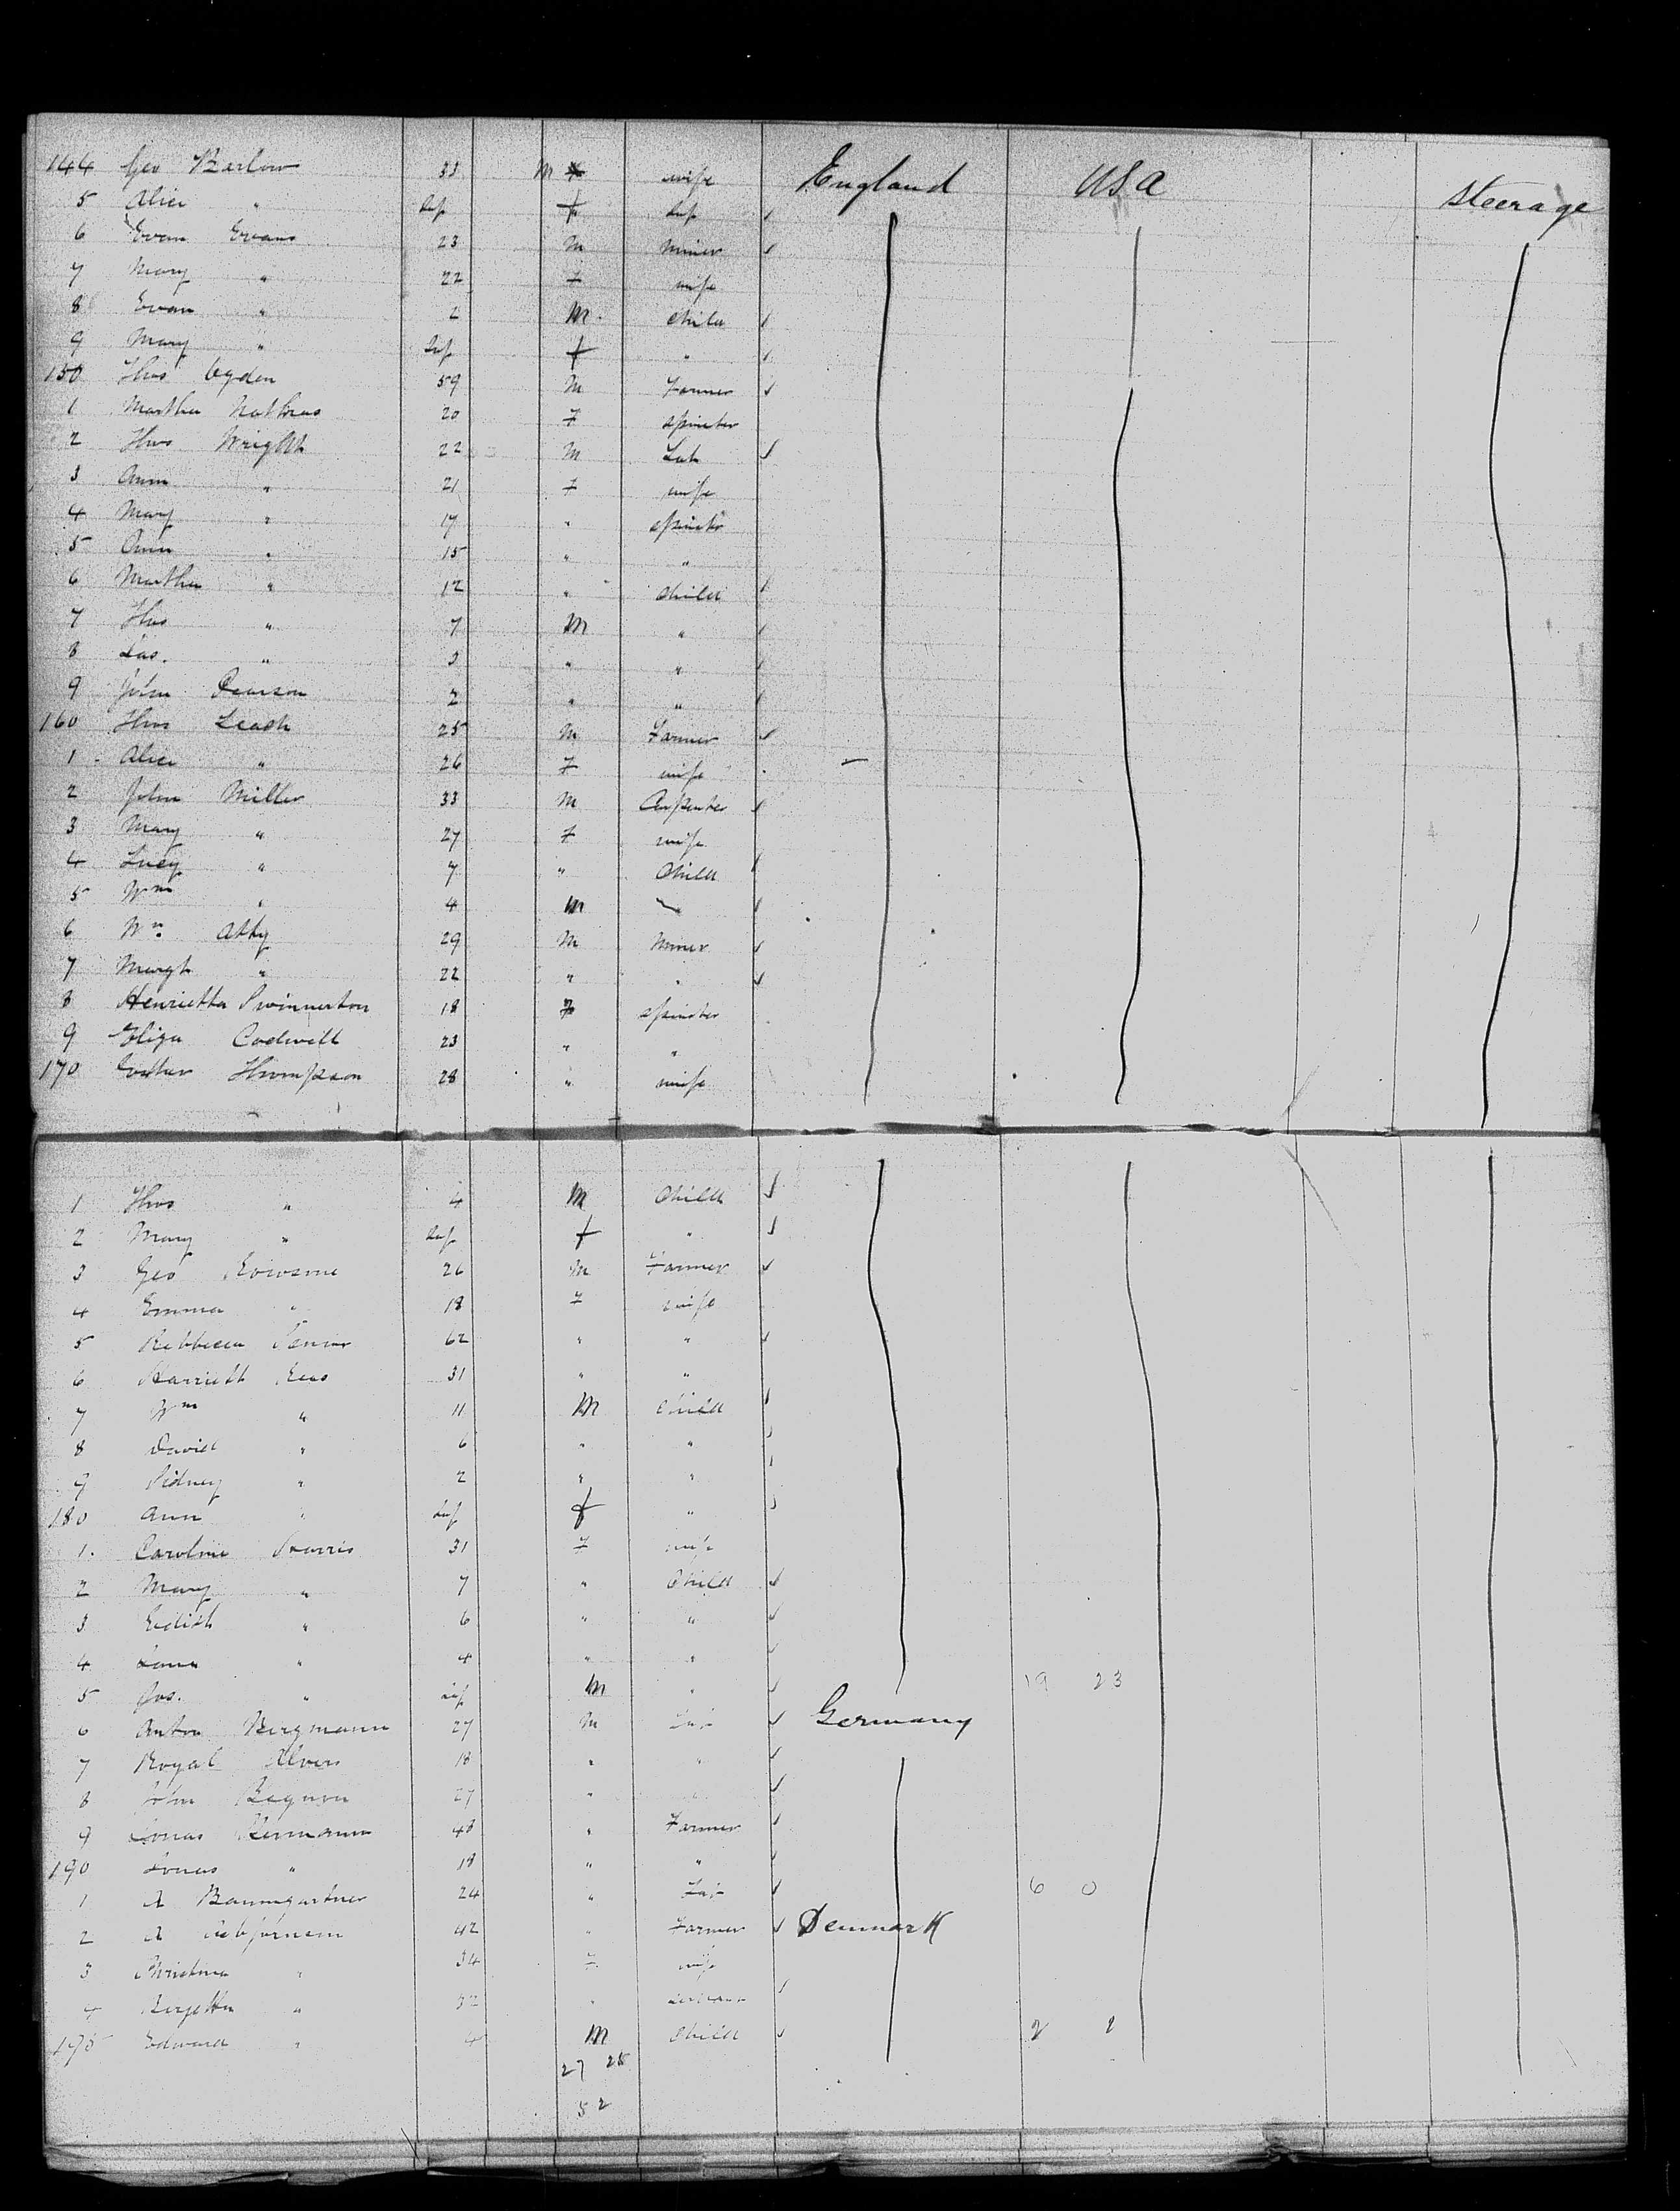 144 Geo Barlow 33 M wife England USA Steerage
5 Alice " Inf f Inf
6 Evan Evans 23 M Miner
7 Mary " 22 F wife
8 Evan " 2 M. Child
9 Mary " Inf f "
150 Thos Ogden 59 M Farmer
1 Martha 20 F Spinster
2 Thos Wright 22 M Lab
3 Ann " 21 F wife
4 Mary " 17 " Spinster
5 Ann " 15 " "
6 Martha " 12 " Child
7 Thos " 7 M "
8 Jas. " 3 " "
9 John Pearson 2 " "
160 Thos Leach 25 M Farmer
1 Alice " 26 F wife
2 John Miller 33 M Carpenter
3 Mary " 27 F wife
4 Lucy " 7 " Child
5 Wm " 4 M
6 Wm Atky 29 M Miner
7 Margt " 22 " "
8 Henrietta Swinnerton 18 F Spinster
9 Eliza Codwell 23 " "
170 Esther Thompson 28 " wife
1 Thos " 4 M Child
2 Mary " Inf f "
3 Geo 26 M Farmer
4 Emma " 18 F wife
5 Rebbecca 62 " "
6 Harriett Rees 31 " "
7 Wm " 11 M Child
8 David " 6 " "
9 Sidney " 2 " "
180 Ann " Inf f "
1. Caroline Harris 31 F wife
2 Mary " 7 " Child
3 Edith " 6 " "
4 " 4 " "
5 Jas. " Inf M " 19 23
6 Anton Bergmann 27 M Lab Germany
7 Royal 18 " "
8 John 27 " "
9 Jonas Hermann 48 " Farmer
190 Jonas " 18 " "
1 A Baumgartner 24 " Lab 6 0
2 A 42 " Farmer Denmark
3 Christina " 34 F. wife
4 " 32 "
195 Edward " 4 M Child 2 2
27 25
52